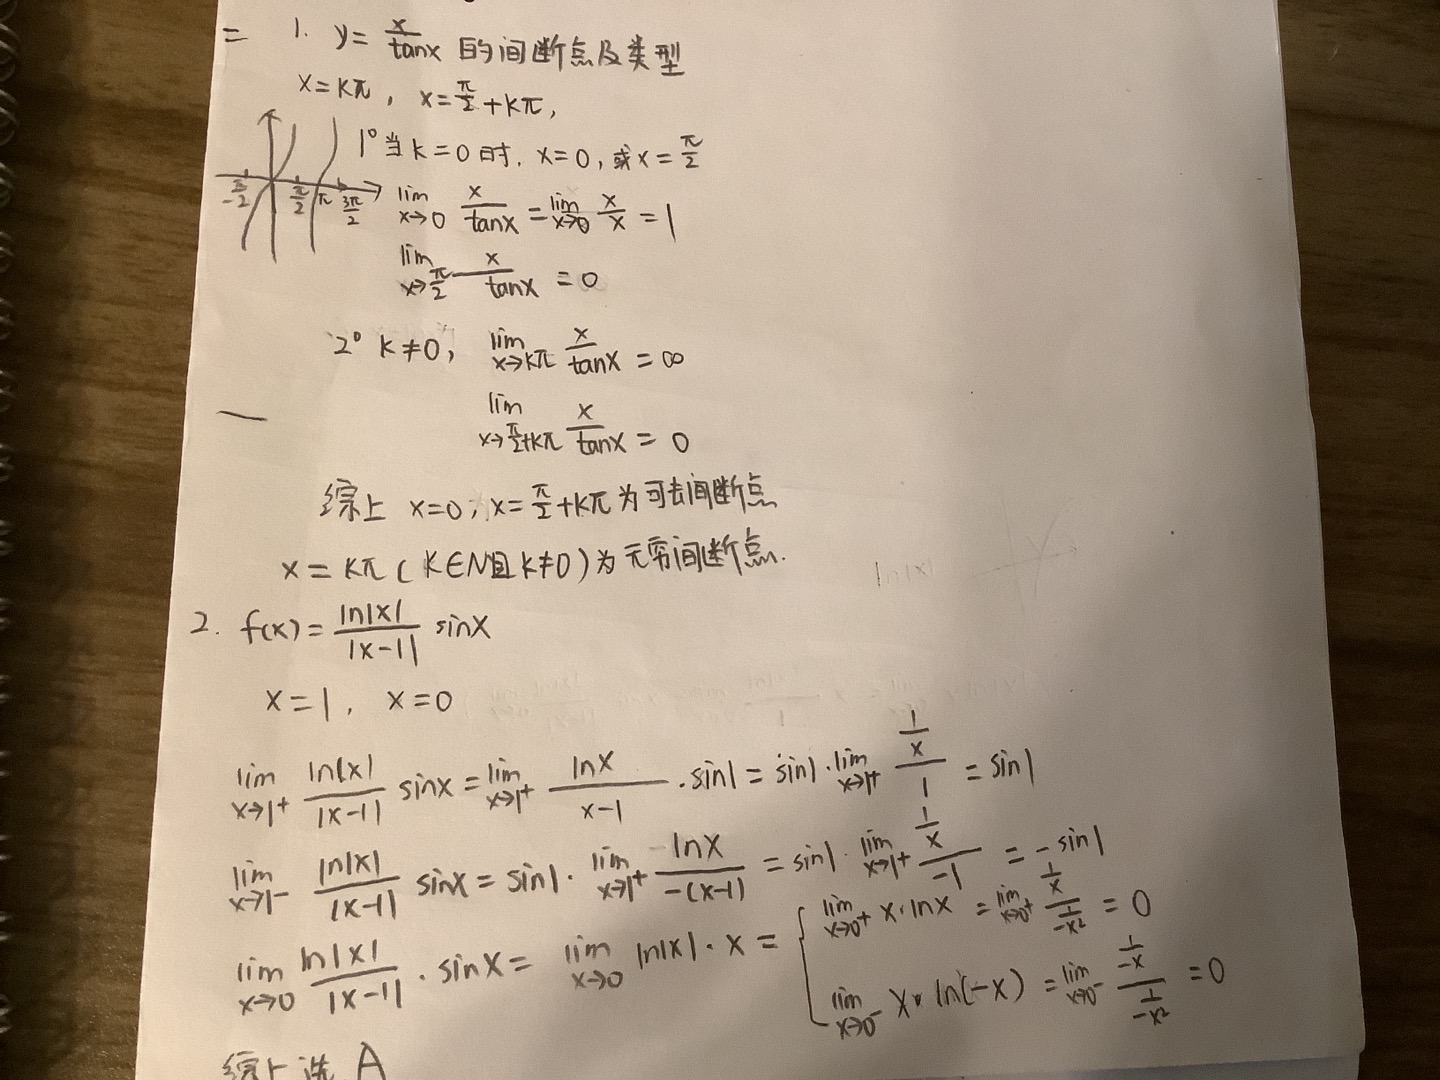 二 1. y=x/tanx 的间断点及类型
x=kπ, x=π/2+kπ,
1° 当k=0时. x=0, 或x=π/2
-π/2 π/2 π 3π/2
lim x→0 x/tanx = lim x→0 x/x = 1
lim x→π/2 x/tanx = 0
2° k≠0, lim x→kπ x/tanx = ∞
lim x→π/2+kπ x/tanx = 0
综上 x=0; x=π/2+kπ 为可去间断点
x=kπ (k∈N且k≠0) 为无穷间断点.
2. f(x)= ln|x|/|x-1| sinx
x=1, x=0
lim x→1+ ln|x|/|x-1| sinx = lim x→1+ lnx/(x-1) · sin1 = sin1 · lim x→1+ (1/x)/1 = sin1
lim x→1- ln|x|/|x-1| sinx = sin1 · lim x→1+ lnx/-(x-1) = sin1 · lim x→1+ (1/x)/-1 = -sin1
lim x→0 ln|x|/|x-1| · sinx = lim x→0 ln|x| · x = { lim x→0+ x·lnx = lim x→0+ (1/x)/(1/-x²) = 0
lim x→0- x·ln(-x) = lim x→0- (1/-x)/(1/-x²) = 0
综上选 A